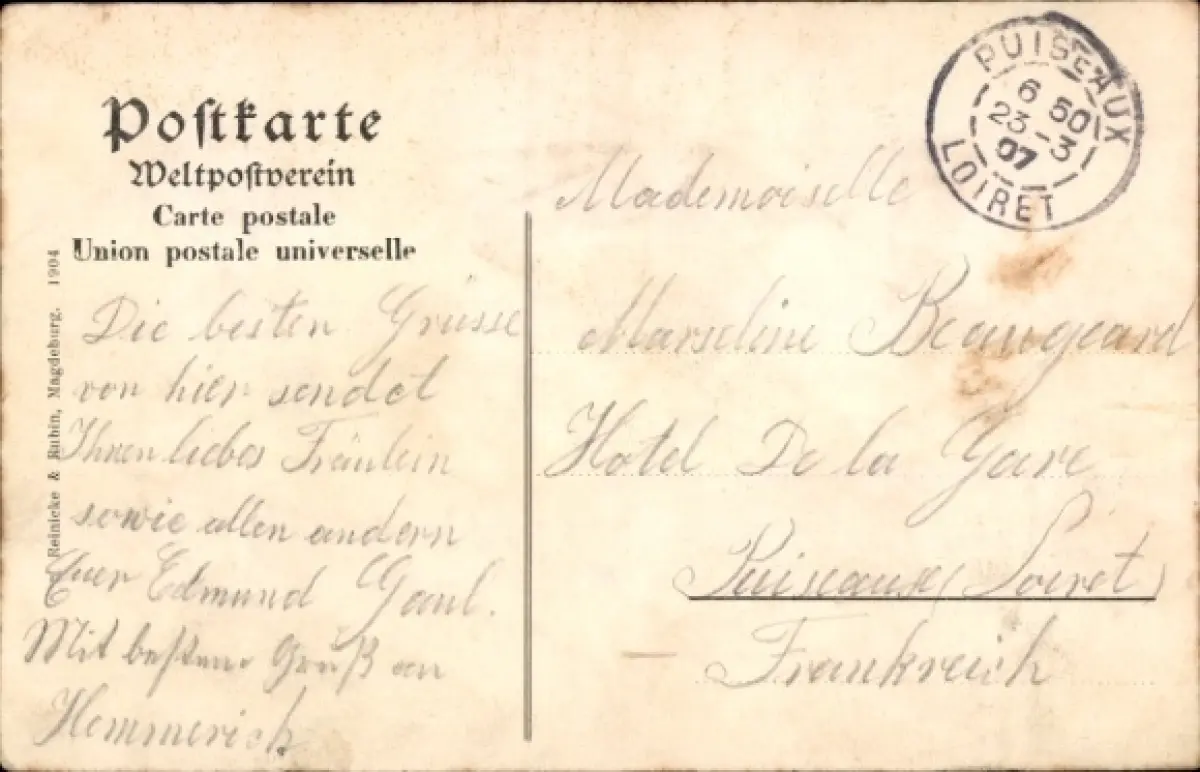 Postkarte
Weltpostverein
Carte postale
Union postale universelle
Reinicke & Rubin, Magdeburg, 1904
Die besten Grüsse
von hier sendet
Ihnen liebes Fräulein
sowie allen andern
Euer Edmund Gaul.
Mit bestem Gruß an
Hemmerich
PUISEAUX
6 50
23 - 3
07
LOIRET
Mademoiselle
Marseline Beaugeard
Hotel De la Gare
Puiseaux (Loiret)
Frankreich